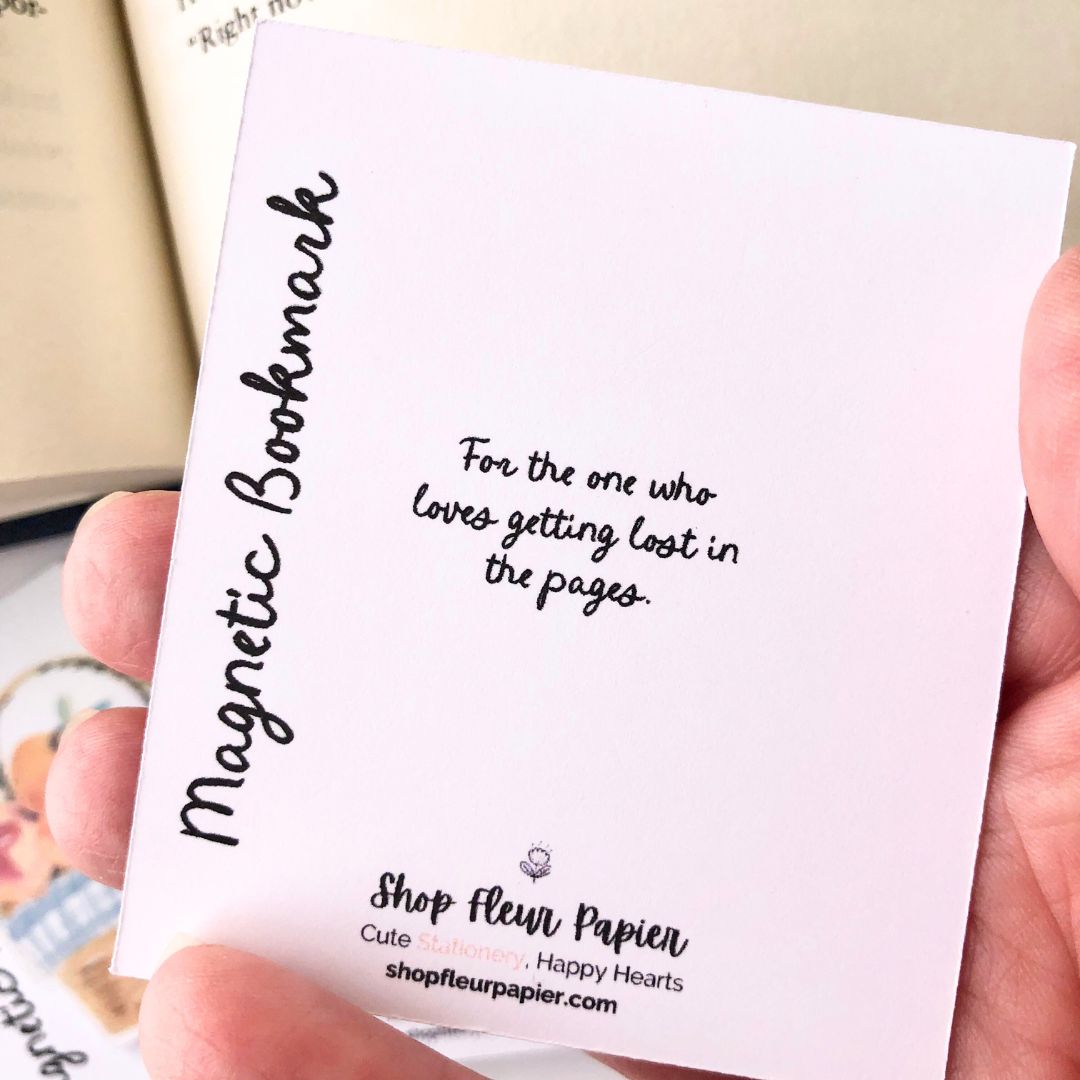 "Right
Magnetic Bookmark
For the one who
loves getting lost in
the pages.
Shop Fleur Papier
Cute Stationery, Happy Hearts
shopfleurpapier.com